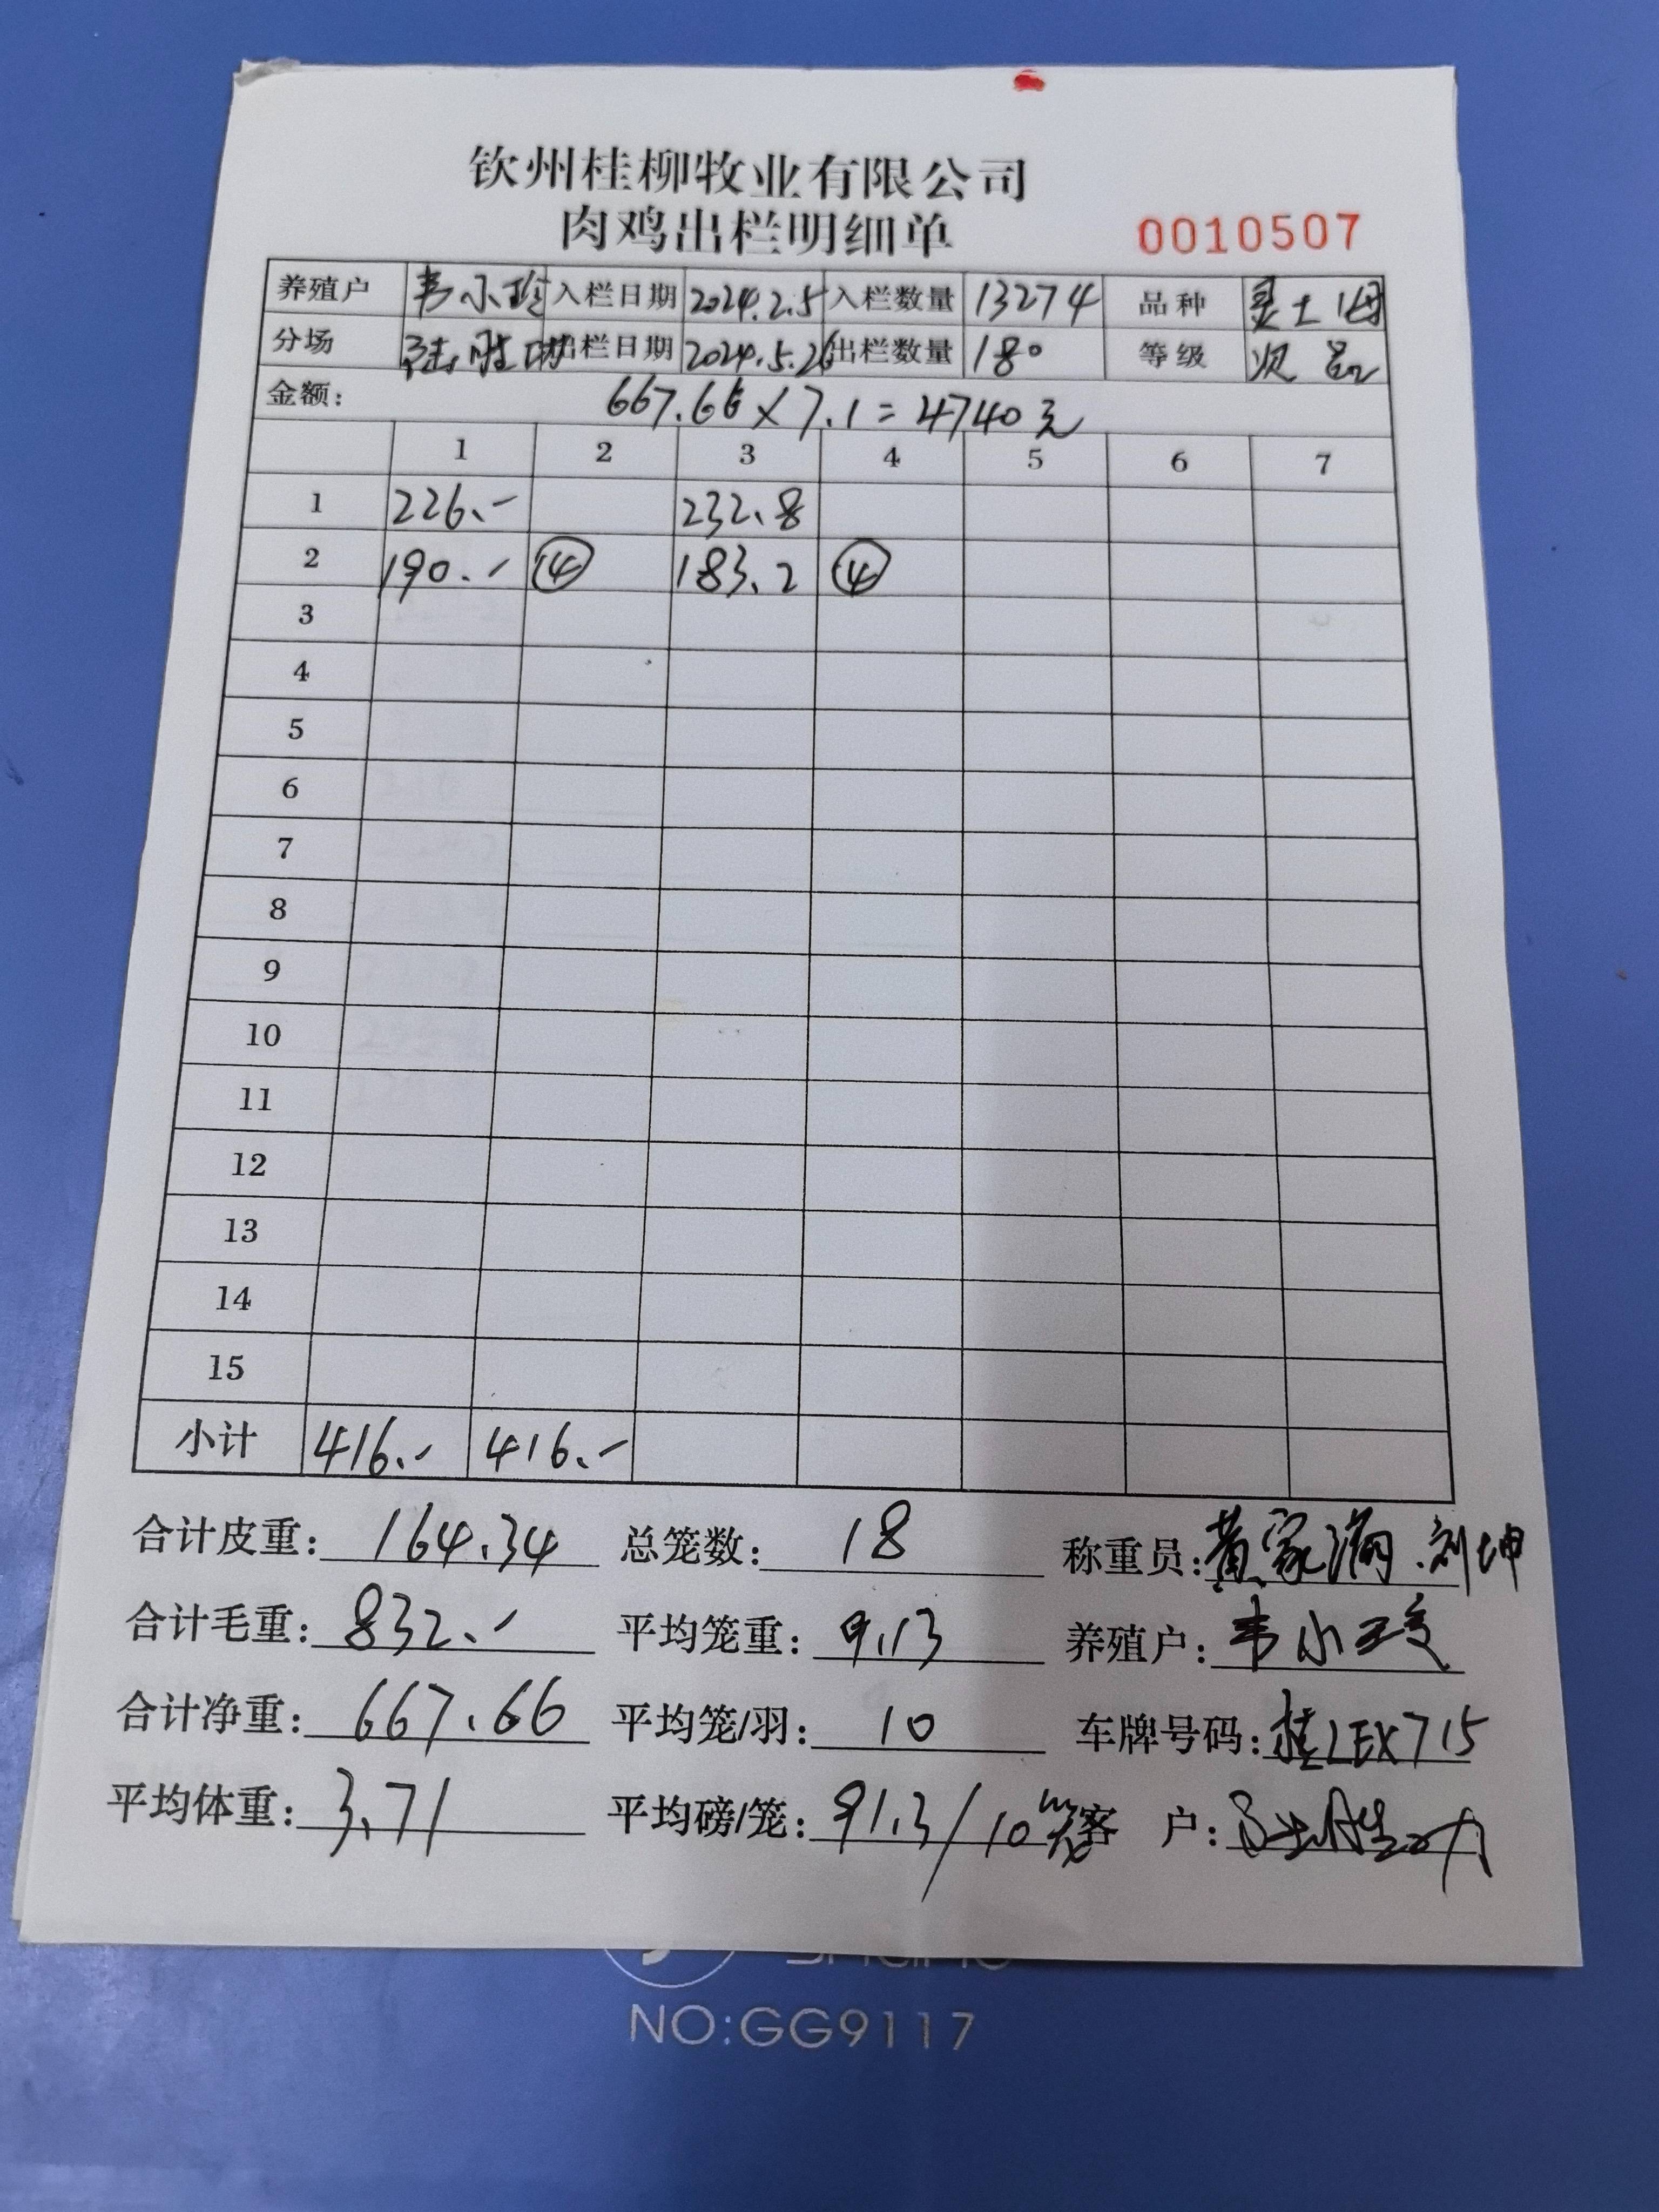 钦州桂柳牧业有限公司
肉鸡出栏明细单 0010507
养殖户 韦小玲 入栏日期 2024.2.5 入栏数量 13274 品种 灵土1母
分场 出栏日期 2024.5.26 出栏数量 180 等级 次品
金额: 667.66×7.1=4740元
1 2 3 4 5 6 7
1 226.- 232.8
2 190.- ④ 183.2 ④
3
4
5
6
7
8
9
10
11
12
13
14
15
小计 416.- 416.-
合计皮重: 164.34 总笼数: 18 称重员: 黄家满.刘坤
合计毛重: 832.- 平均笼重: 9.13 养殖户: 韦小玲
合计净重: 667.66 平均笼/羽: 10 车牌号码: 桂LEX715
平均体重: 3.71 平均磅/笼: 91.3/10 客 户:
NO:GG9117